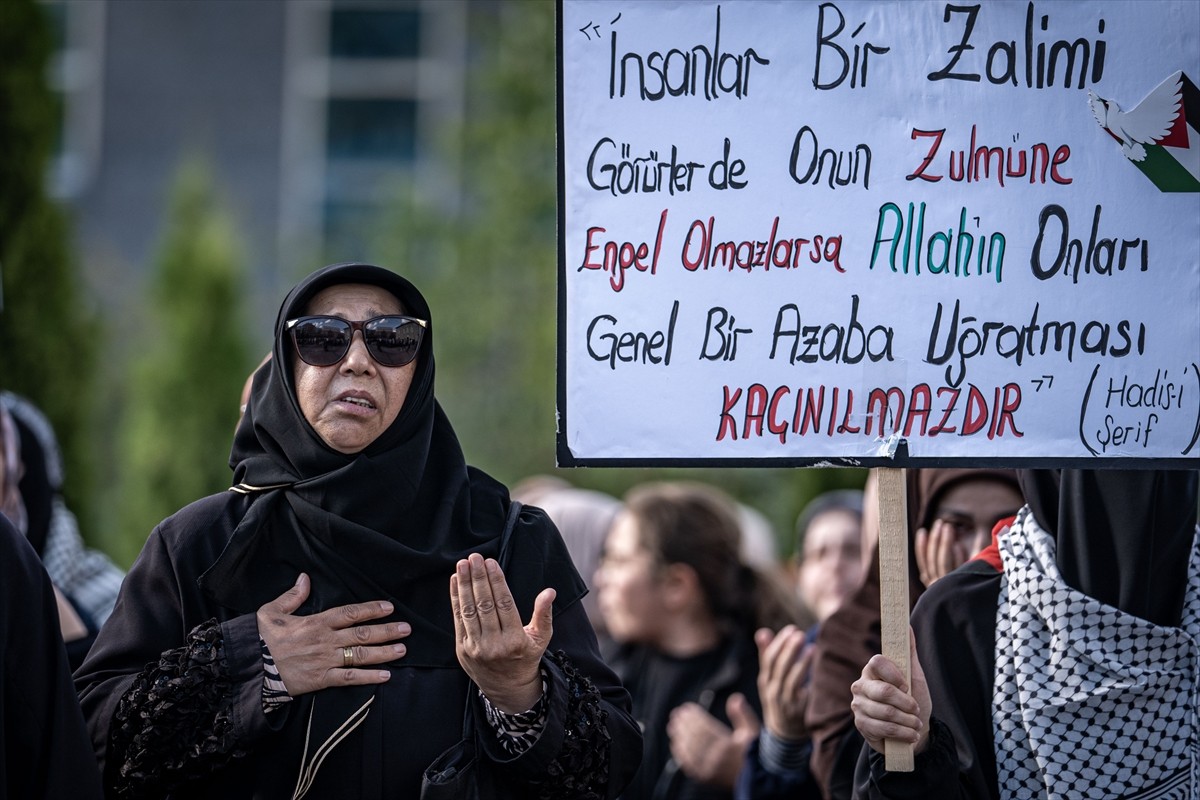 “İnsanlar Bir Zalimi
Görürler de Onun Zulmüne
Engel Olmazlarsa Allah'ın Onları
Genel Bir Azaba Uğratması
KAÇINILMAZDIR” (Hadis-i
Şerif)